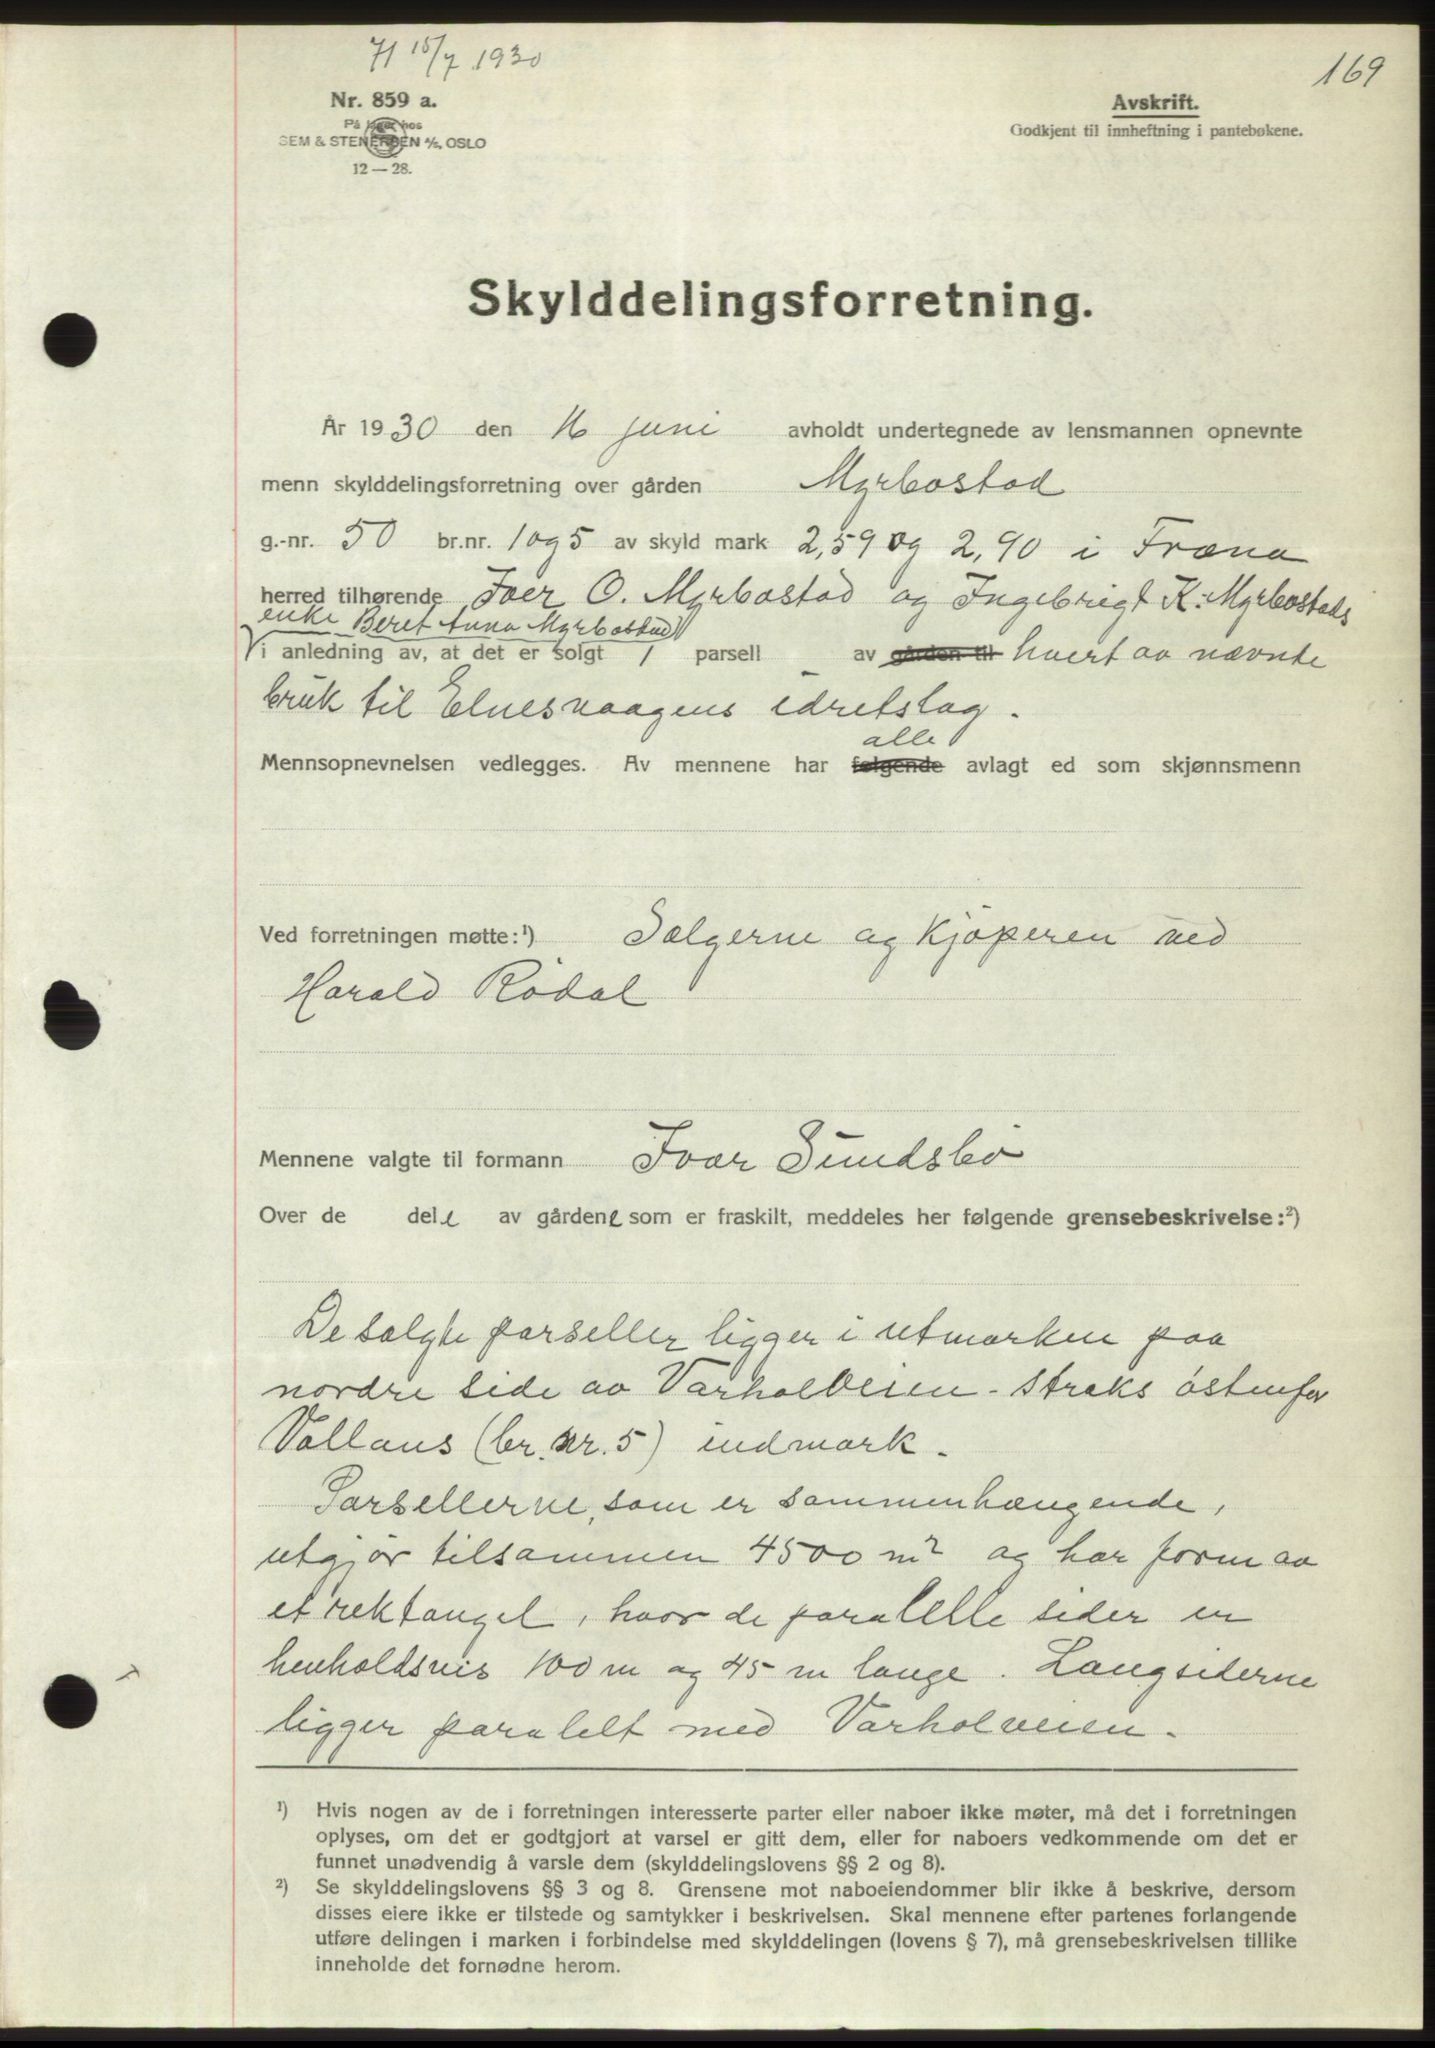 71 15/7 1930
169
Nr. 859 a.
På lager hos
SEM & STENERSEN A/S, OSLO
12 — 28.
Avskrift.
Godkjent til innheftning i pantebøkene.
Skylddelingsforretning.
År 1930 den 16 juni avholdt undertegnede av lensmannen opnevnte
menn skylddelingsforretning over gården Myrbostad
g.-nr. 50 br.nr. 1 og 5 av skyld mark 2,59 og 2,90 i Fræna
herred tilhørende Iver O. Myrbostad og Ingebrigt K. Myrbostads
enke Beret Anna Myrbostad
i anledning av, at det er solgt 1 parsell av gården til hvert av nævnte
bruk til Elnesvaagens idretslag.
alle
Mennsopnevnelsen vedlegges. Av mennene har følgende avlagt ed som skjønnsmenn
Ved forretningen møtte:¹) Sælgerne og kjøperen ved
Harald Rødal
Mennene valgte til formann Ivar Sundsbø
Over de dele av gårdene som er fraskilt, meddeles her følgende grensebeskrivelse:²)
De solgte parseller ligger i utmarken paa
nordre side av Varholveien - straks østenfor
Vollans (br. nr. 5) indmark.
Parsellerne, som er sammenhængende,
utgjør tilsammen 4500 m² og har form av
et rektangel, hvor de paralelle sider er
henholdsvis 100 m og 45 m lange. Langsiderne
ligger paralelt med Varholveien.
¹) Hvis nogen av de i forretningen interesserte parter eller naboer ikke møter, må det i forretningen
oplyses, om det er godtgjort at varsel er gitt dem, eller for naboers vedkommende om det er
funnet unødvendig å varsle dem (skylddelingslovens §§ 2 og 8).
²) Se skylddelingslovens §§ 3 og 8. Grensene mot naboeiendommer blir ikke å beskrive, dersom
disses eiere ikke er tilstede og samtykker i beskrivelsen. Skal mennene efter partenes forlangende
utføre delingen i marken i forbindelse med skylddelingen (lovens § 7), må grensebeskrivelsen tillike
inneholde det fornødne herom.